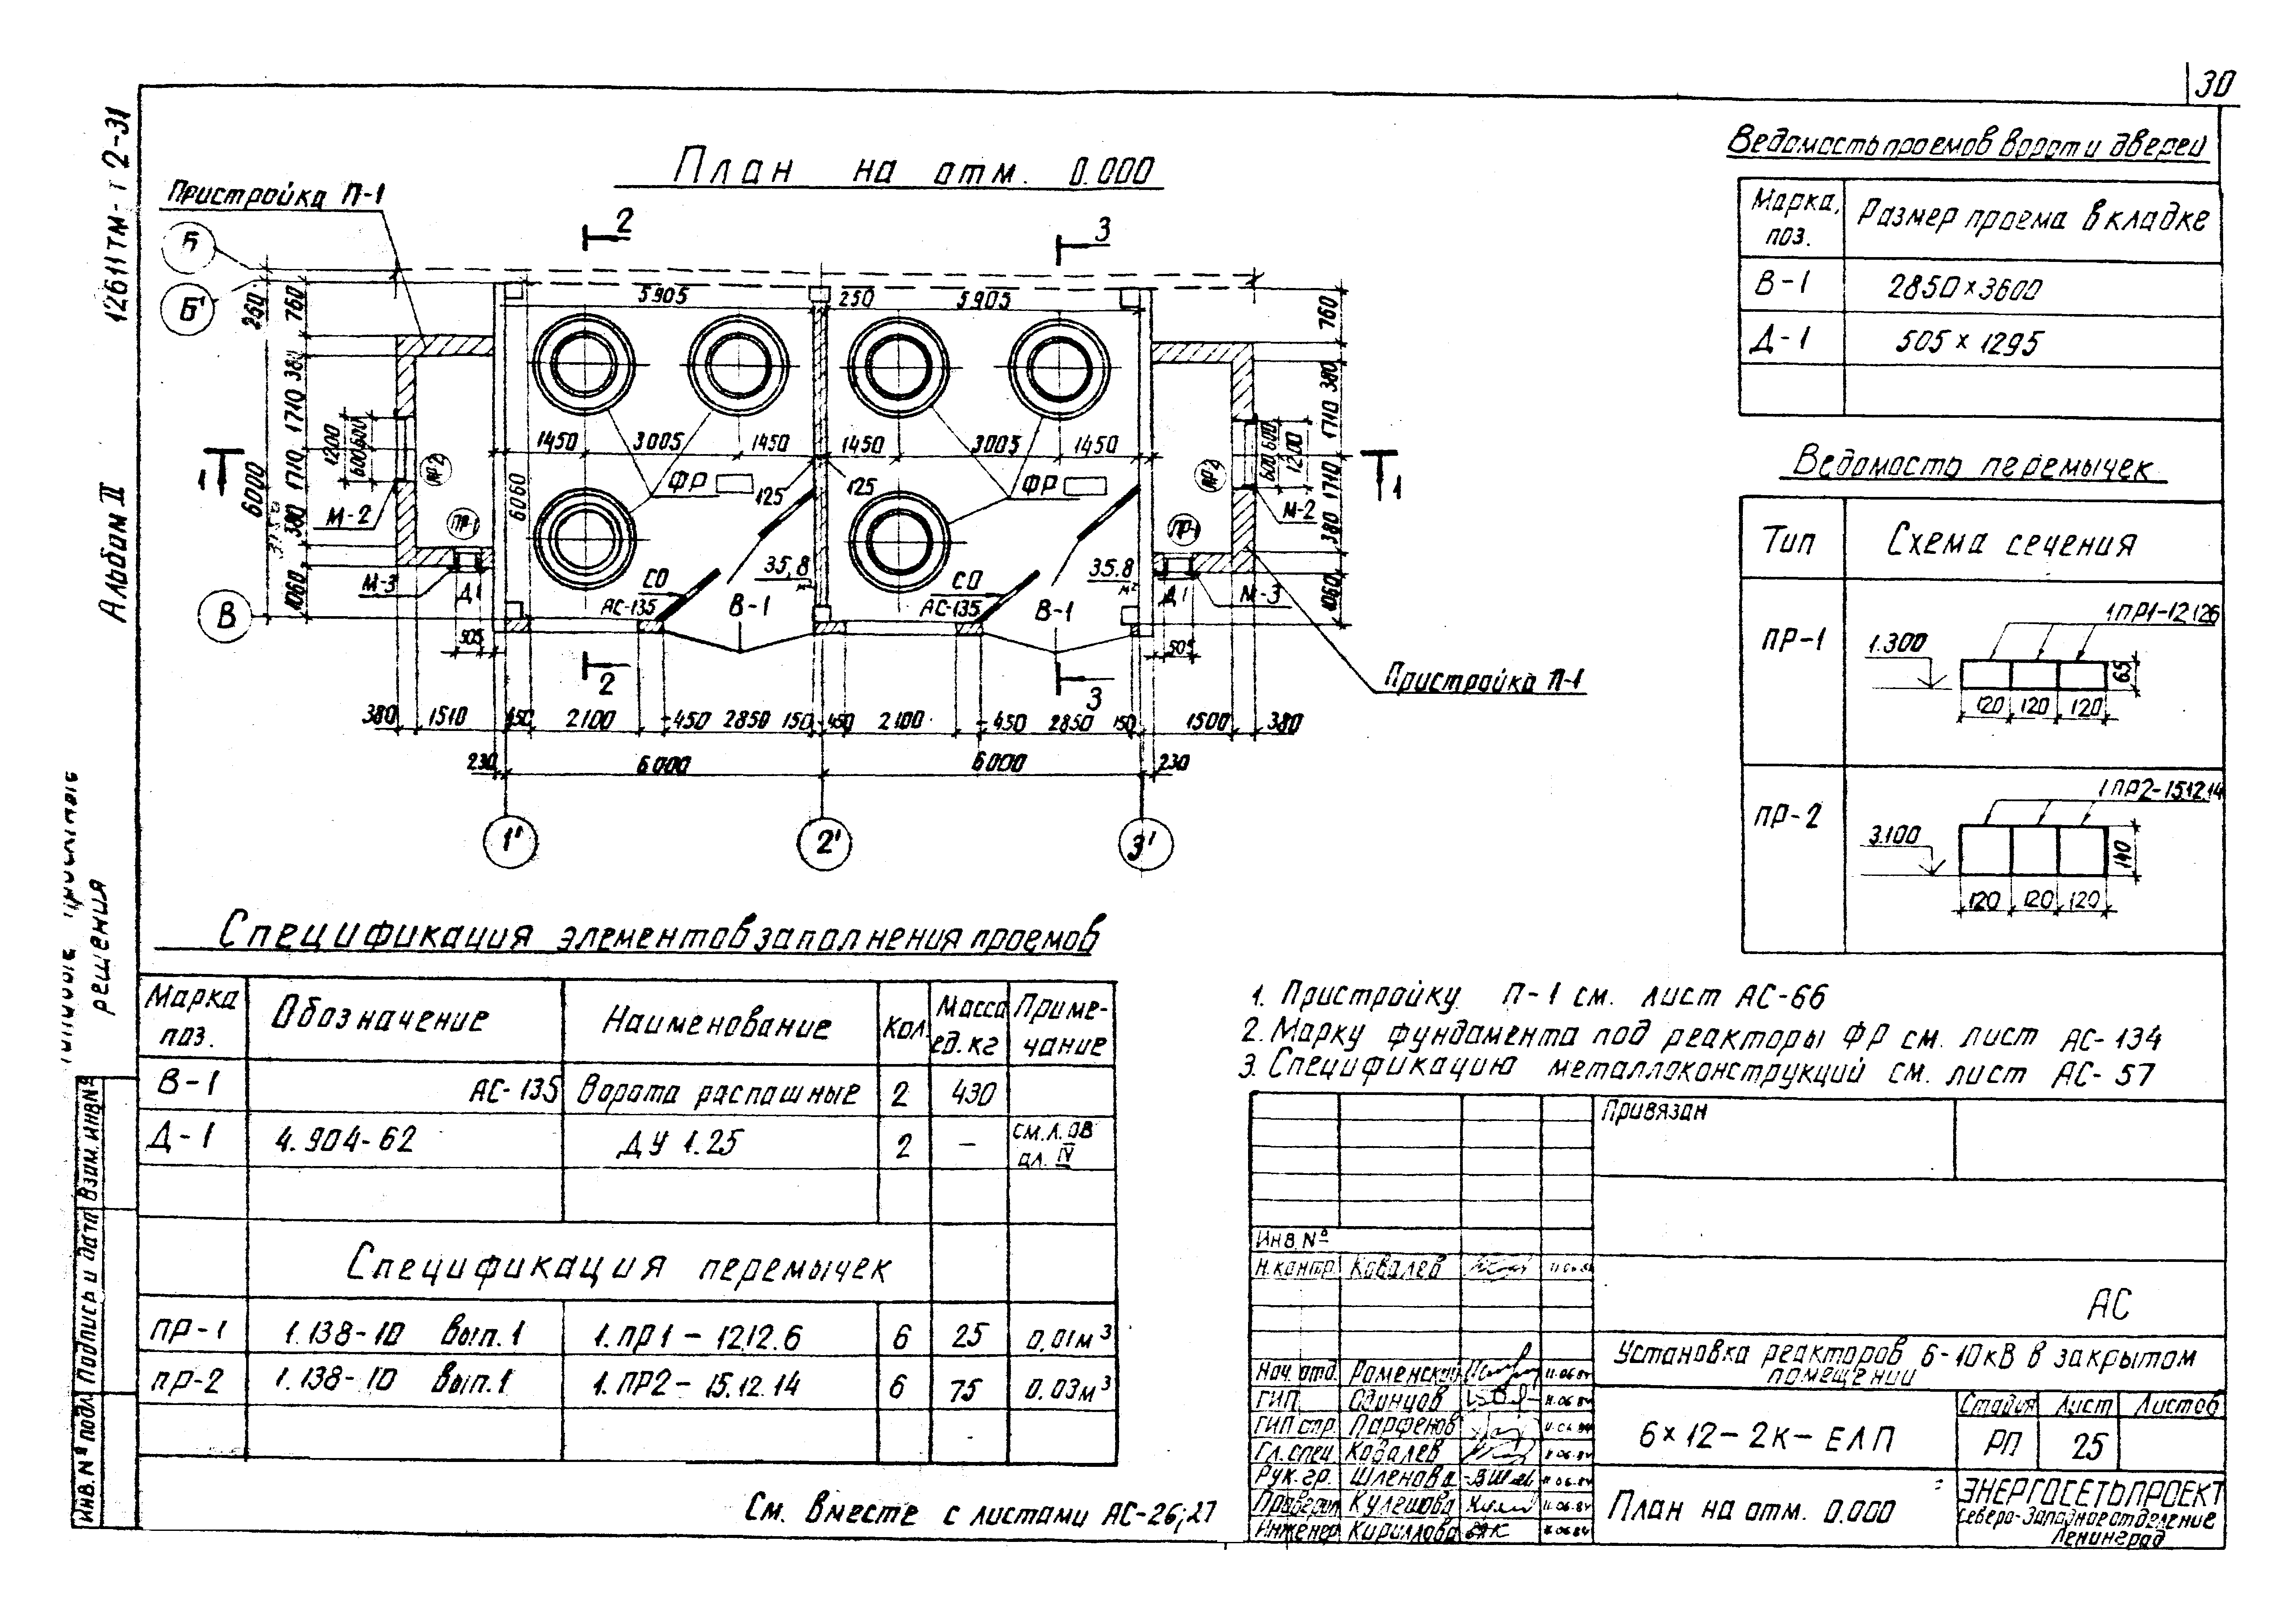 30
12611тм-т2-31
Альбом II
решения
План на отм. 0.000
Пристройка П-1
Б
Б'
В
2
3
5905
250
5905
260
760
380
1710
1710
380
1060
6000
1200
600 600
ПР-2
ПР-1
М-2
М-3
Д1
505
1450
3005
1450
1450
3005
1450
6060
ФР
125
125
ФР
СО
АС-135
В-1
35,8
м²
СО
АС-135
В-1
35.8
м²
1
1
760
380
1710
1710
380
1060
600 600
1200
ПР-2
ПР-1
М-2
М-3
Д1
505
Пристройка П-1
2
3
380
1510
450
2100
450
2850
150
450
2100
450
2850
150
1500
380
230
6000
6000
230
1'
2'
3'
Ведомость проемов ворот и дверей
Марка, поз.
Размер проема в кладке
В-1
2850×3600
Д-1
505×1295
Ведомость перемычек
Тип
Схема сечения
ПР-1
1.300
1ПР1-12.12.6
65
120 120 120
ПР-2
3.100
1ПР2-15.12.14
140
120 120 120
Спецификация элементов заполнения проемов
Марка поз.
Обозначение
Наименование
Кол.
Масса ед. кг
Примечание
В-1 АС-135 Ворота распашные 2 430
Д-1 4.904-62 ДУ 1.25 2 — см.л. ОВ ал. IV
Спецификация перемычек
ПР-1 1.138-10 Вып.1 1.ПР1-12.12.6 6 25 0,01м³
ПР-2 1.138-10 Вып.1 1.ПР2-15.12.14 6 75 0.03м³
См. вместе с листами АС-26;27
1. Пристройку П-1 см. лист АС-66
2. Марку фундамента под реакторы ФР см. лист АС-134
3. Спецификацию металлоконструкций см. лист АС-57
Привязан
Инв.№
Н.контр. Ковалев
Нач. отд. Роменский 11.06.84
ГИП Одинцов 11.06.84
ГИП стр. Парфенов
Гл.спец. Ковалев 11.06.84
Рук.гр. Шленова 11.06.84
Проверил Кулешова 11.06.84
Инженер Кириллова 11.06.84
АС
Установка реакторов 6-10кВ в закрытом помещении
6×12-2К-ЕЛП
Стадия Лист Листов
РП 25
План на отм. 0.000
ЭНЕРГОСЕТЬПРОЕКТ
Северо-Западное отделение
Ленинград
Взам. инв.№
Подпись и дата
Инв.№ подл.